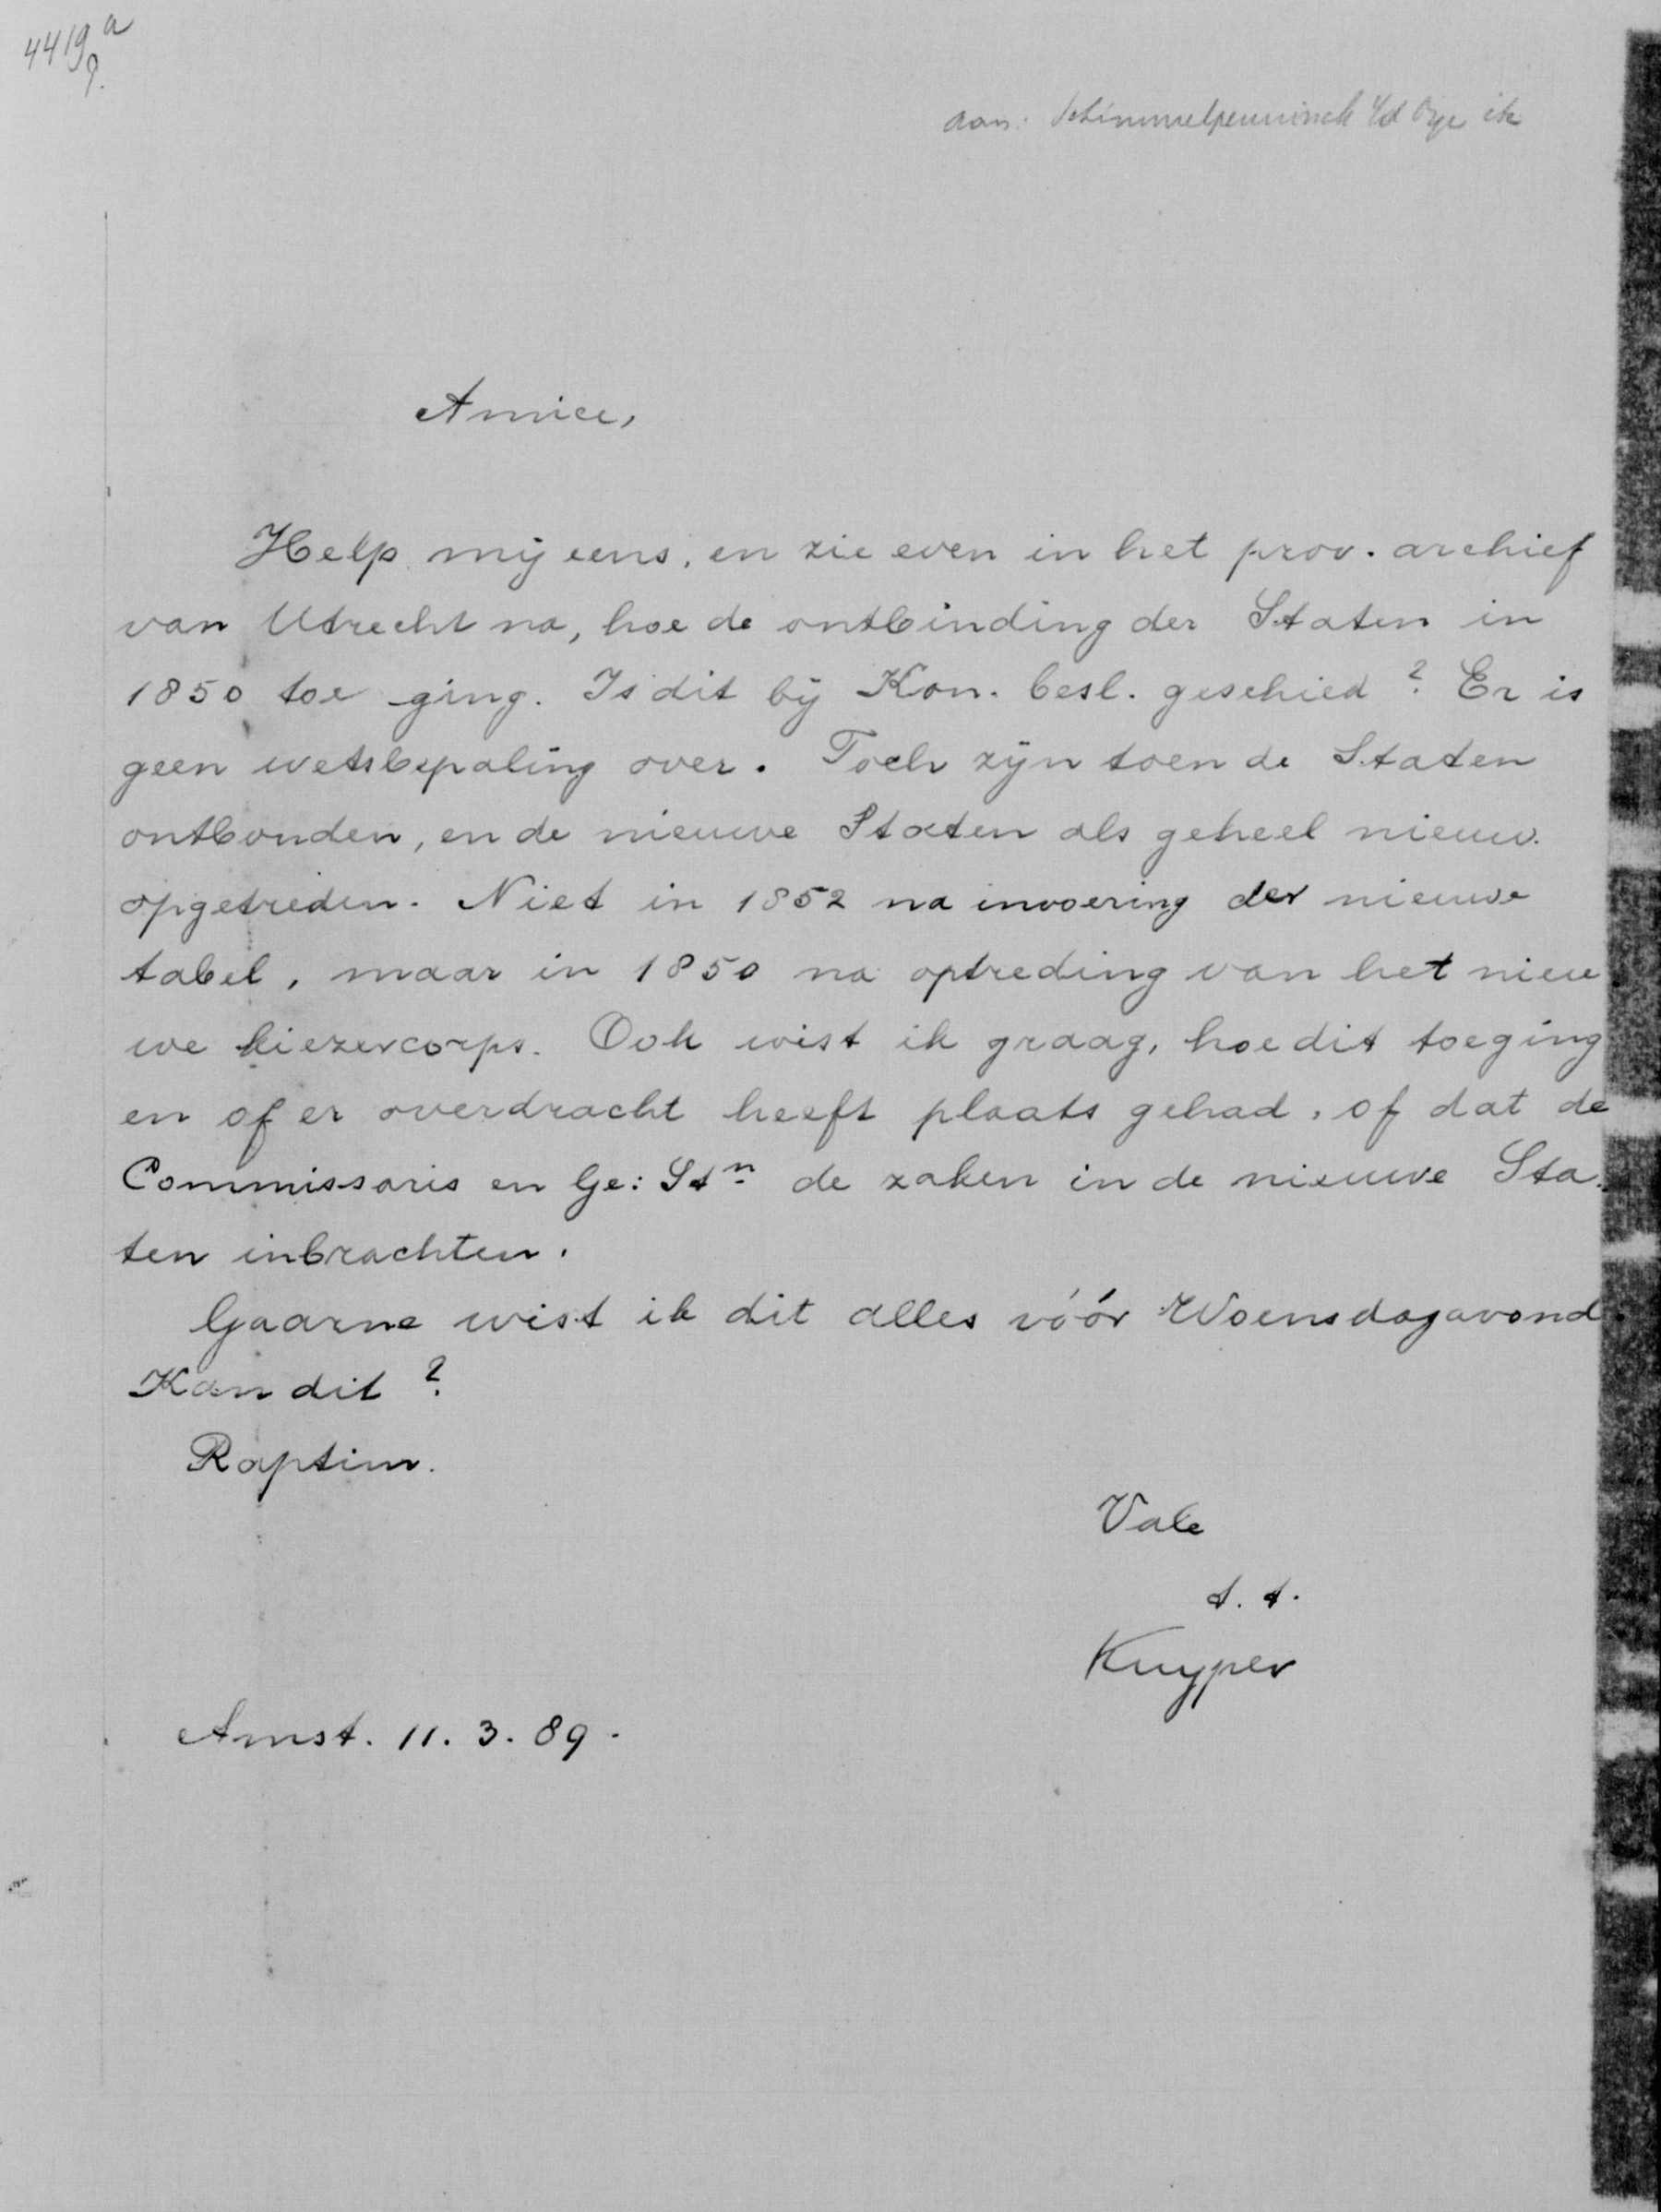 4419a
9.
aan: Schimmelpenninck v/d Oye
Amice,
Help mij eens, en zie even in het prov. archief
van Utrecht na, hoe de ontbinding der Staten in
1850 toe ging. Is dit bij Kon. besl. geschied? Er is
geen wetsbepaling over. Toch zijn toen de Staten
ontbonden, en de nieuwe Staten als geheel nieuw.
opgetreden. Niet in 1852 na invoering der nieuwe
tabel, maar in 1850 na optreding van het nieu
we kiezercorps. Ook wist ik graag, hoe dit toeging
en of er overdracht heeft plaats gehad, of dat de
Commissaris en Ge: Stn de zaken in de nieuwe Sta-
ten inbrachten.
Gaarne wist ik dit alles vóór Woensdagavond.
Kan dit?
Raptim.
Vale
t. t.
Kuyper
Amst. 11. 3. 89.